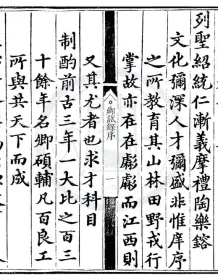 列聖紹統仁漸義摩禮陶樂鎔
文化彌深人才彌盛非惟庠序
之所敎育其山林田野戎行
掌故亦在在彪彪而江西則
又其尤者也求才科目
制酌前古三年一大比之百三
十餘年名卿碩輔凡百良工
所與共天下而成